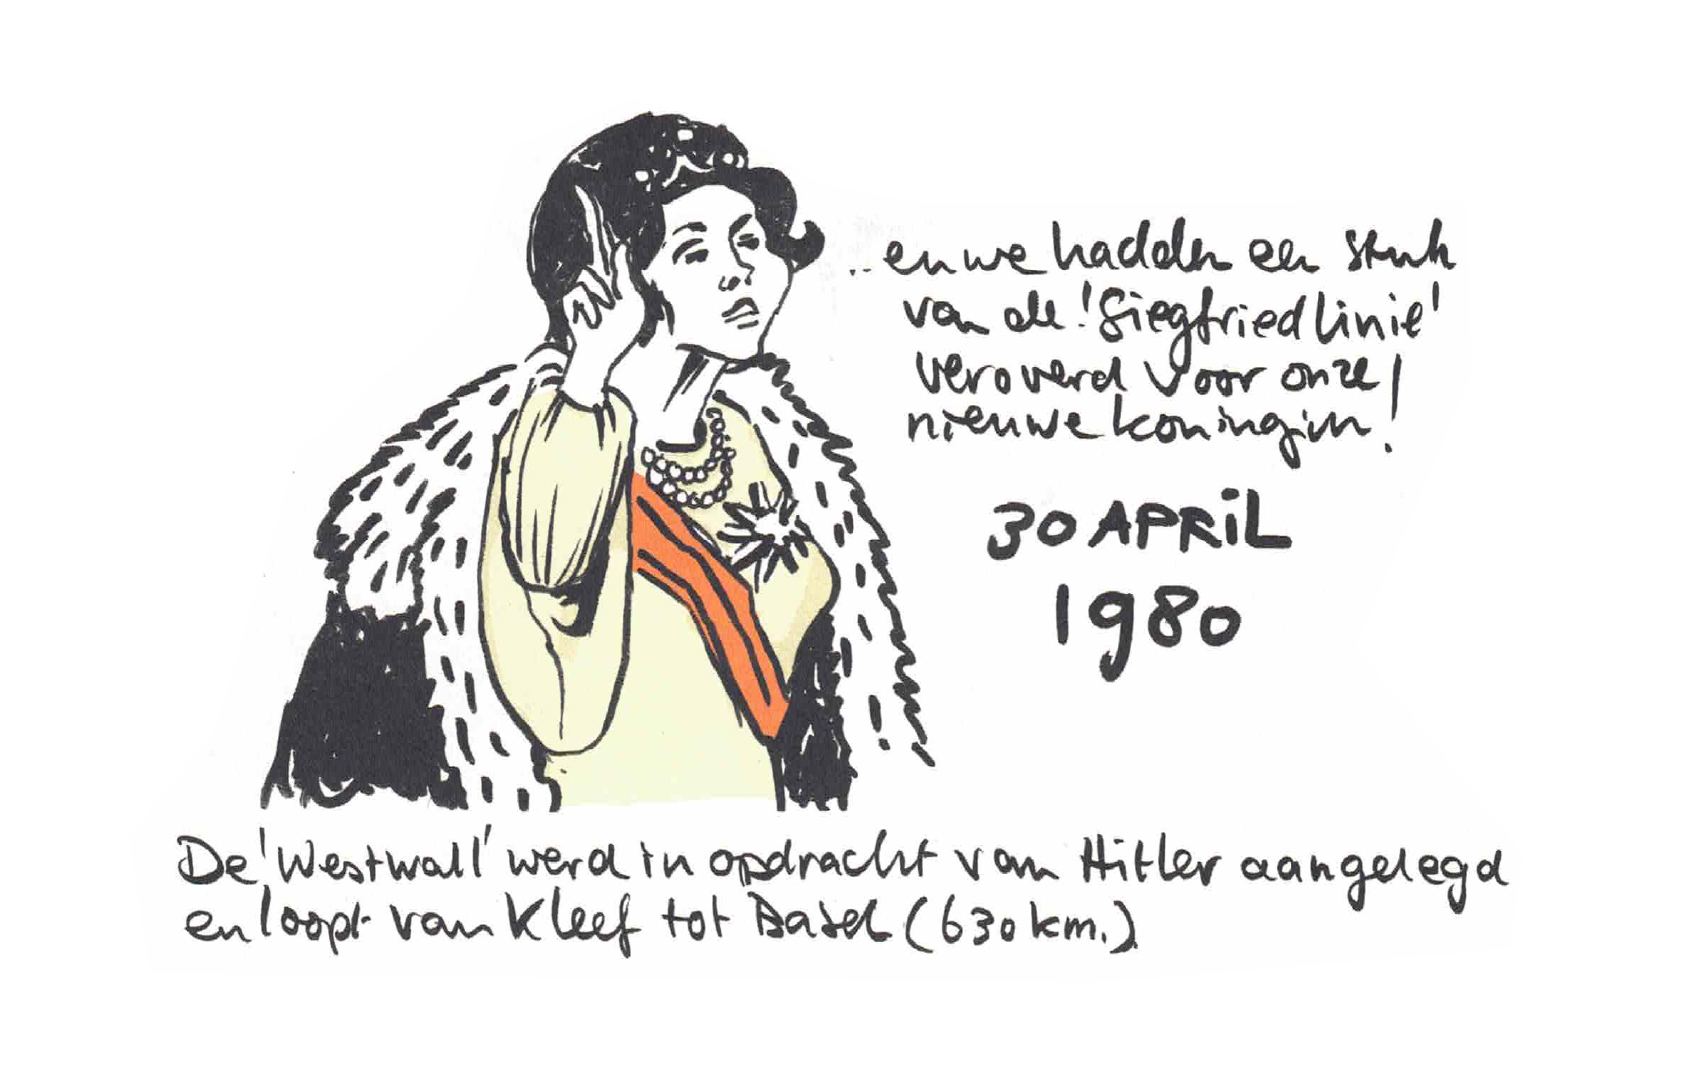 ..en we hadden een stuk
van de 'Siegfriedlinie'
veroverd voor onze
nieuwe koningin!
30 APRIL
1980
De 'Westwall' werd in opdracht van Hitler aangelegd
en loopt van Kleef tot Basel (630 km.)